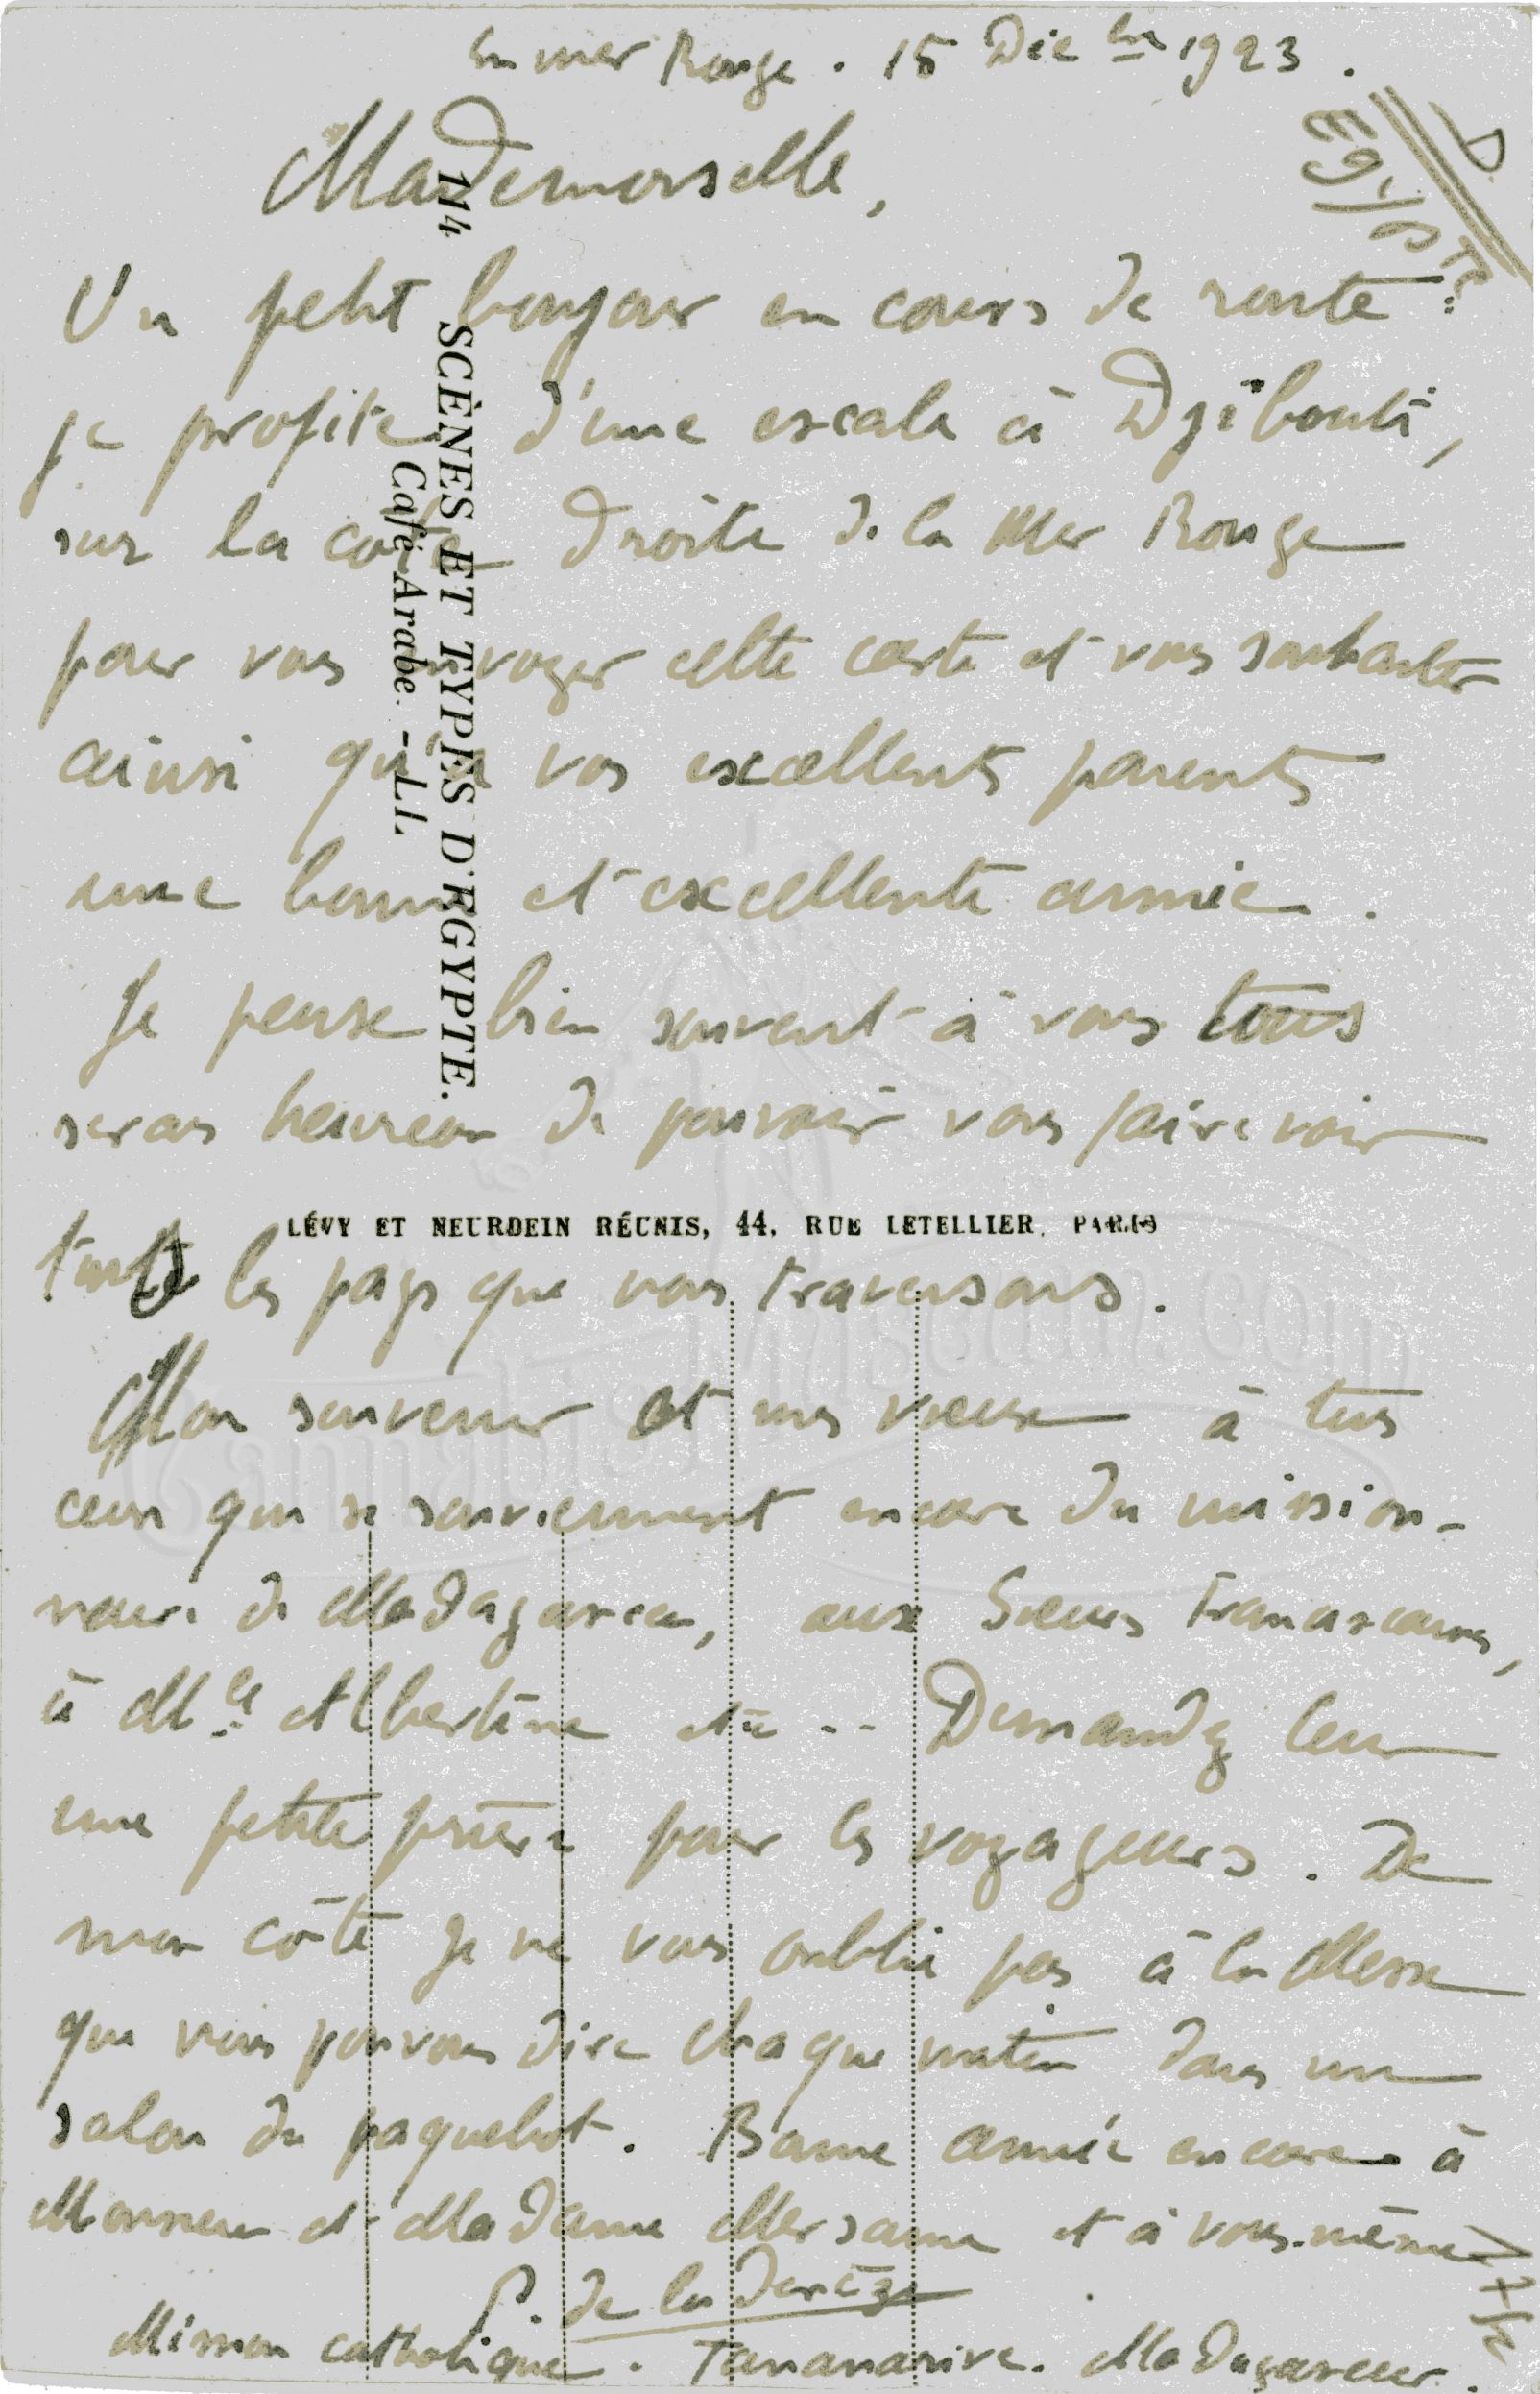 En mer Rouge. 15 Déc bre 1923.
Mademoiselle,
Un petit bonjour en cours de route :
je profite d'une escale à Djibouti,
sur la côte droite de la Mer Rouge
pour vous envoyer cette carte et vous souhaiter
ainsi qu'à vos excellents parents
une bonne et excellente année.
Je pense bien souvent à vous tous
serais heureux de pouvoir vous faire voir
tous les pays que nous traversons.
Mon souvenir et mes vœux à tous
ceux qui se souviennent encore du mission-
naire de Madagascar, aux Sœurs Franciscaines,
à Mlle Albertine etc -- Demandez leur
une petite prière pour les voyageurs. De
mon côté je ne vous oublie pas à la Messe
que nous pouvons dire chaque matin dans un
salon du paquebot. Bonne année encore à
Monsieur et Madame et à vous-même
P. de la
Mission catholique. Tananarive. Madagascar.
D
Egypte
114 SCÈNES ET TYPES D'EGYPTE.
Café Arabe. - LL
LÉVY ET NEURDEIN RÉUNIS, 44, RUE LETELLIER, PARIS
CannabisMuseum.com